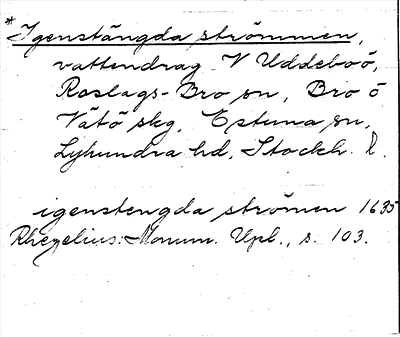 *Igenstängda strömmen,
vattendrag V Uddeboö,
Roslags-Bro sn, Bro ö
Vätö skg, Estuna sn,
Lyhundra hd, Stockh. l.
igenstengda strömen 1635
Rhezelius: Monum. Upl., s. 103.